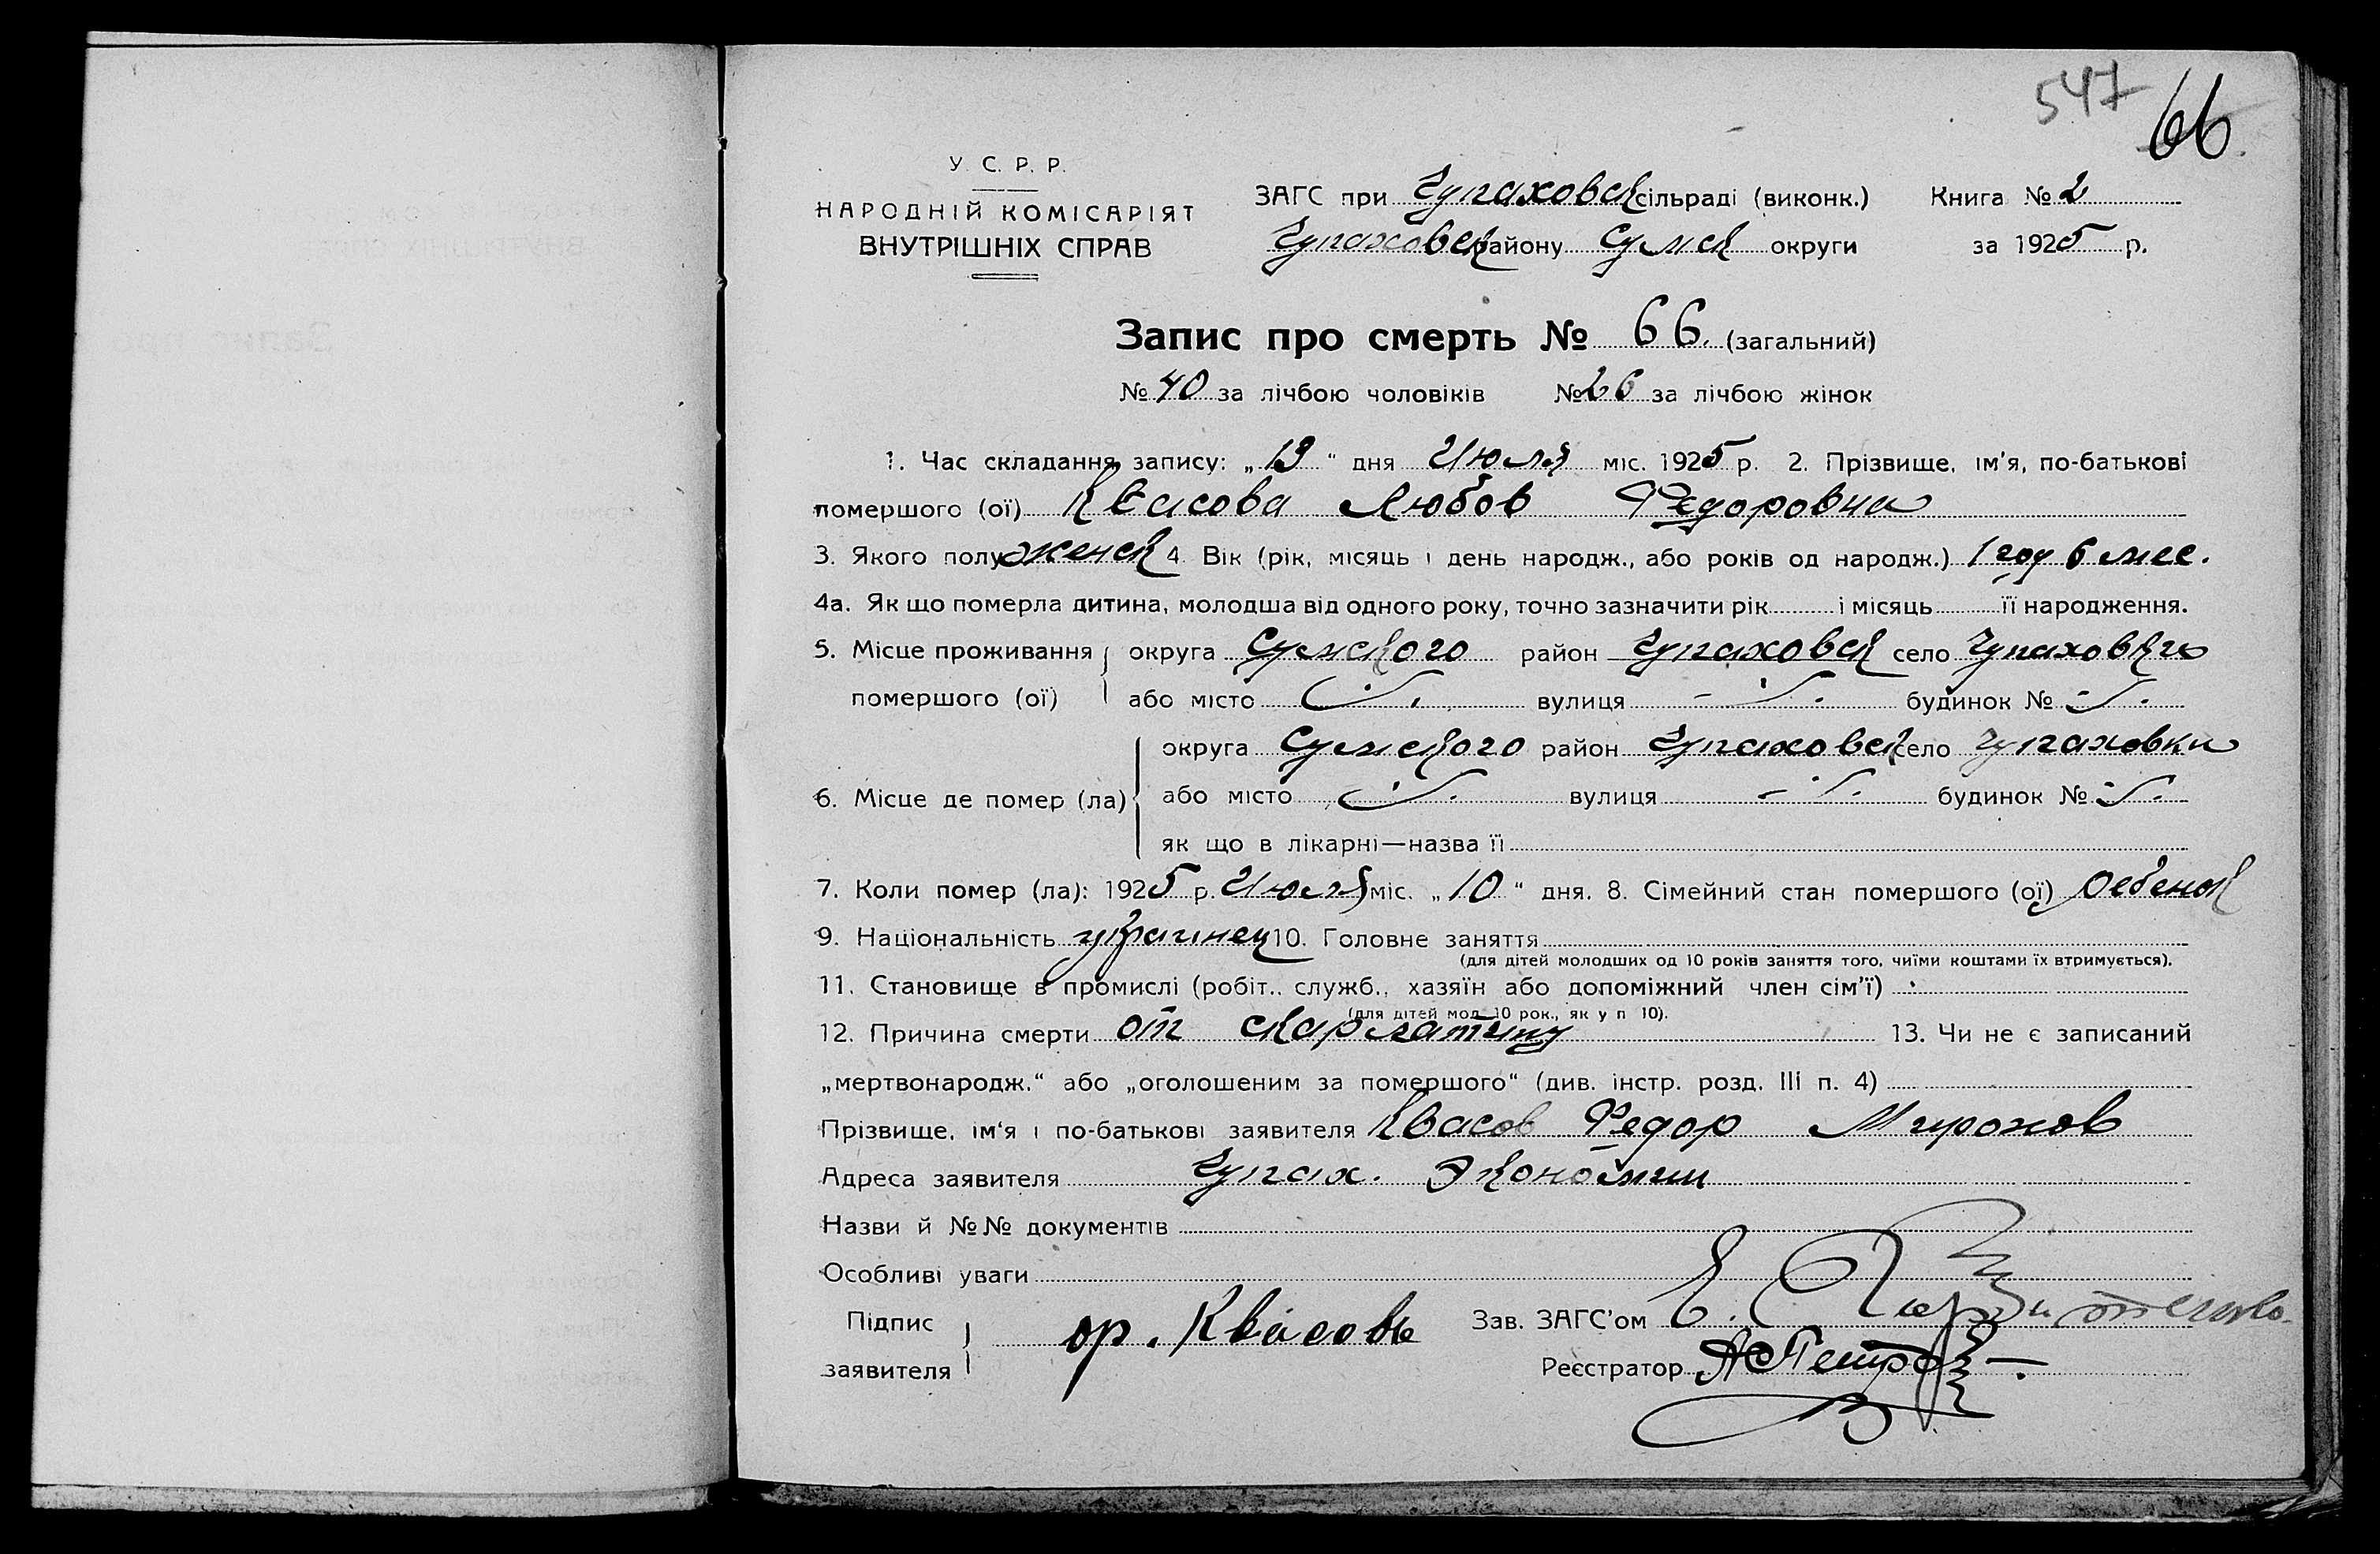 547 66
У. С. Р. Р.
НАРОДНІЙ КОМІСАРІЯТ
ВНУТРІШНІХ СПРАВ
ЗАГС при Чупаховск сільраді (виконк.) Книга № 2
Чупаховск району Сумск округи за 1925 р.
Запис про смерть № 66. (загальний)
№ 40 за лічбою чоловіків № 26 за лічбою жінок
1. Час складання запису: „ 13 “ дня Июля міс. 1925 р. 2. Прізвище, ім'я, по-батькові
помершого (ої) Квасова Любов Федоровна
3. Якого полу женск 4. Вік (рік, місяць і день народж., або років од народж.) 1 год 6 мес.
4а. Як що померла дитина, молодша від одного року, точно зазначити рік і місяць її народження.
5. Місце проживання округа Сумского район Чупаховск село Чупаховка
помершого (ої) або місто вулиця будинок №
округа Сумского район Чупаховск село Чупаховки
6. Місце де помер (ла) або місто вулиця будинок №
як що в лікарні—назва її
7. Коли помер (ла): 1925 р. Июля міс. „ 10 “ дня. 8. Сімейний стан помершого (ої) ребенок
9. Національність украинец 10. Головне заняття
(для дітей молодших од 10 років заняття того, чиїми коштами їх втримується).
11. Становище в промислі (робіт., служб., хазяїн або допоміжний член сім'ї)
(для дітей мол. 10 рок., як у п 10).
12. Причина смерти от скарлатины 13. Чи не є записаний
„мертвонародж.“ або „оголошеним за помершого“ (див. інстр. розд. III п. 4)
Прізвище, ім'я і по-батькові заявителя Квасов Федор Миронов
Адреса заявителя Чупах. Экономии
Назви й №№ документів
Особливі уваги
Підпис
заявителя
Квасовъ
Зав. ЗАГС'ом
Реєстратор АПетров